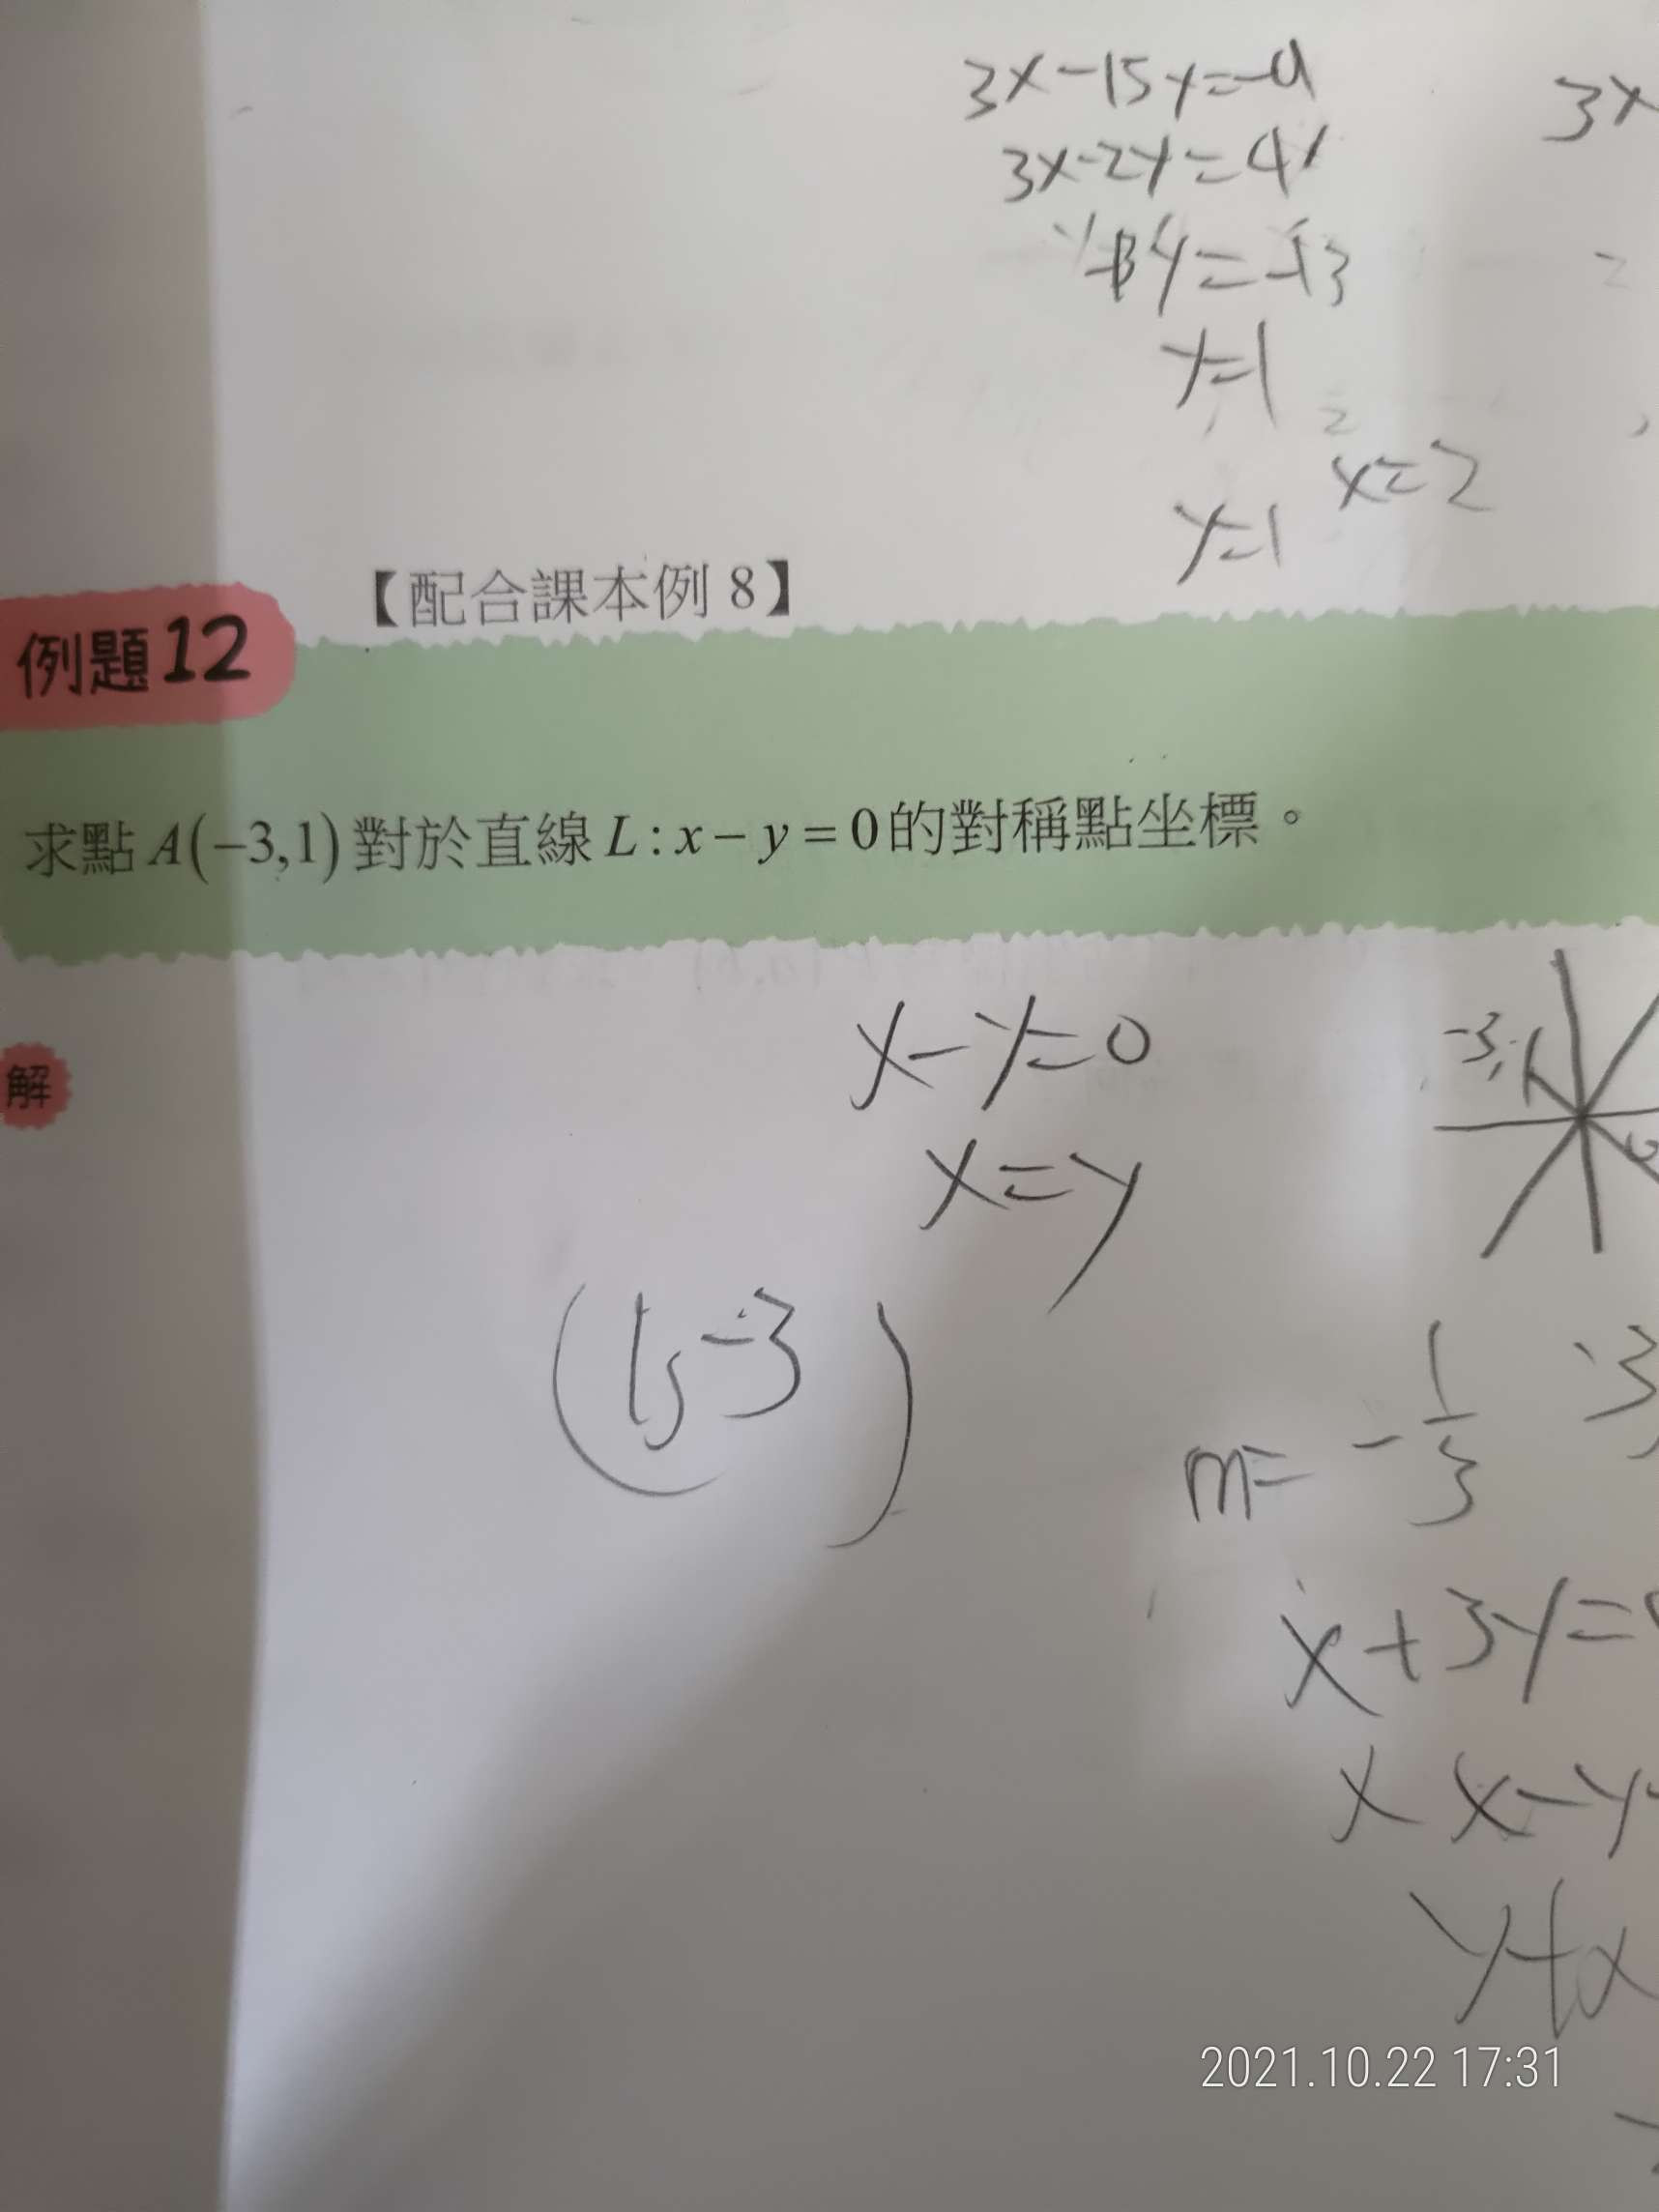 3x-15y=-9
3x
3x-2y=4
-13y=-13
y=1
x=2
y=1
【配合課本例 8】
例題12
求點 A(-3,1) 對於直線 L : x - y = 0 的對稱點坐標。
解
x-y=0
-3,1
x=y
(1,-3)
m= -1/3
x+3y=
x-y
y+x
2021.10.22 17:31